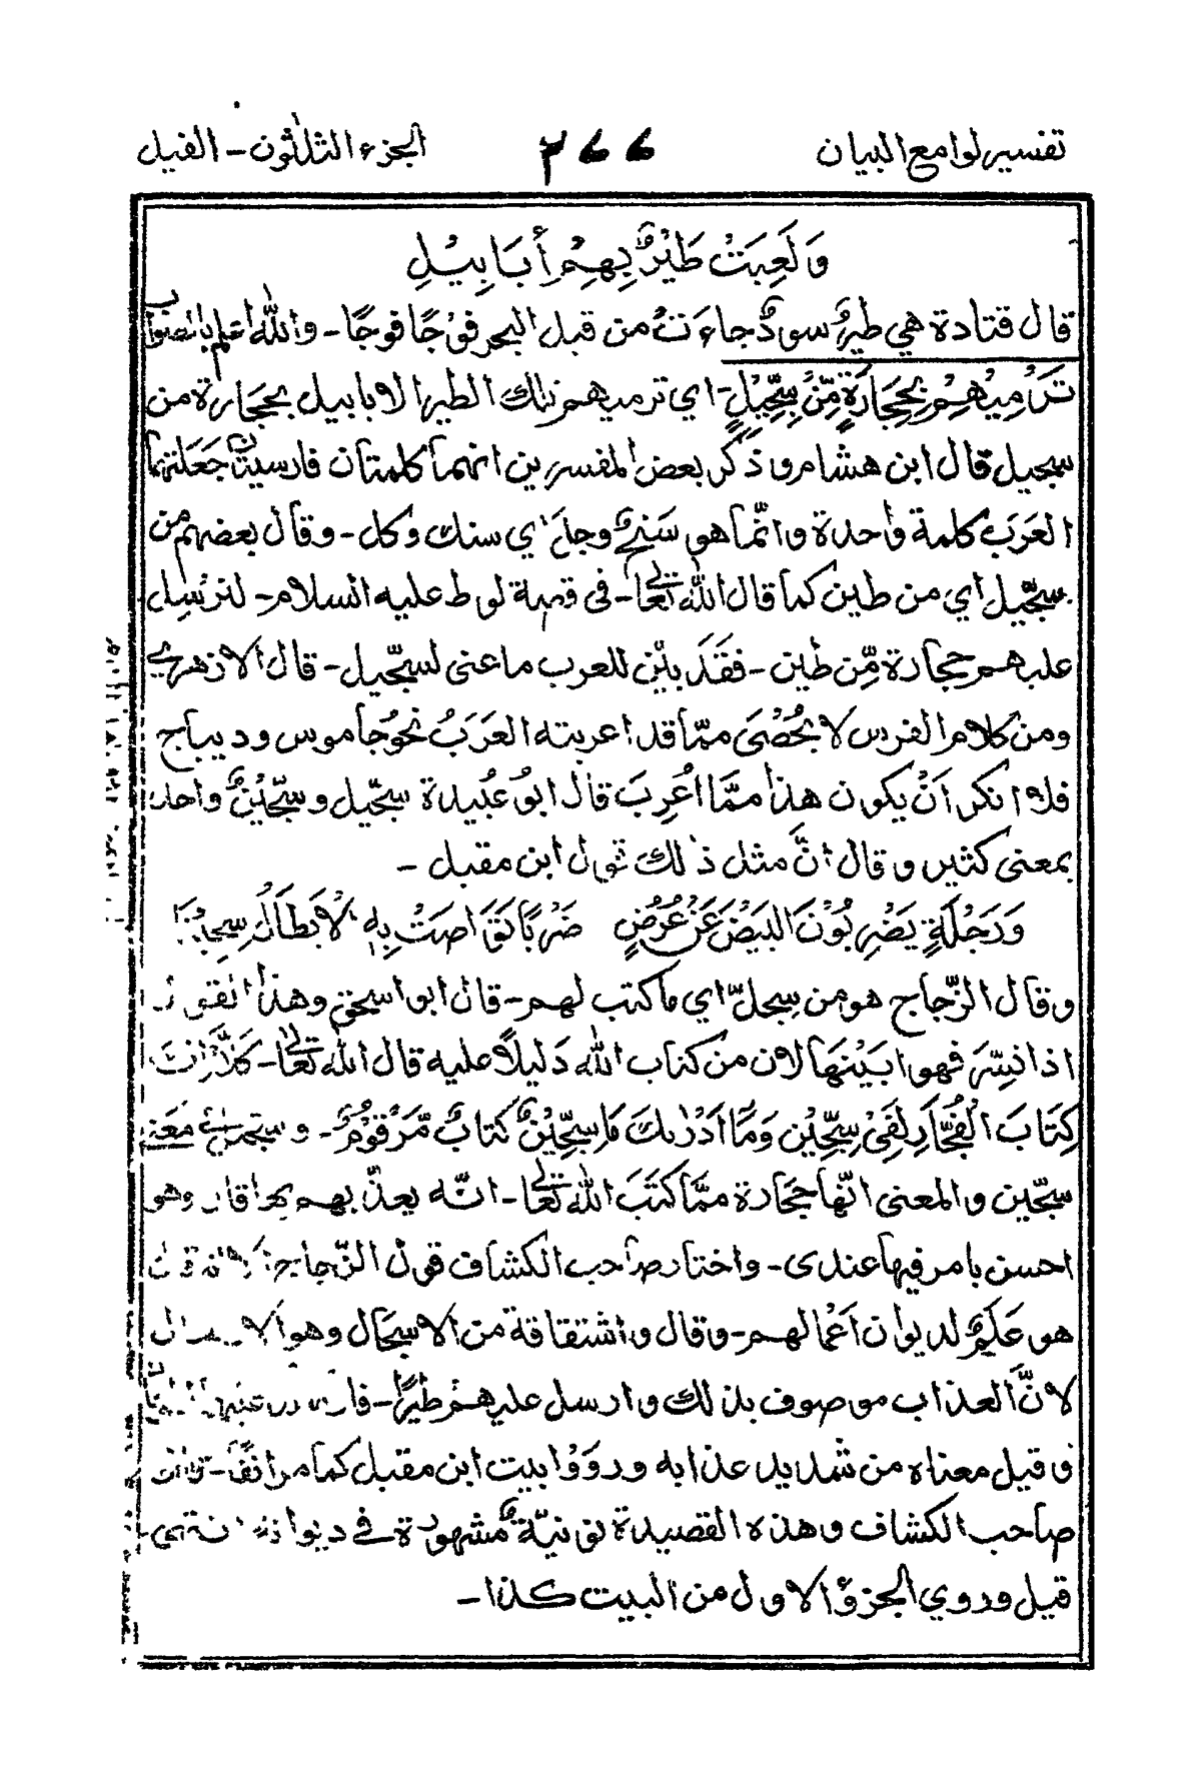 تفسير لوامع البيان ٢٦٦ الجزء الثلثون - الفيل
وَلَعِبَتْ طَيْرٌ بِهِمْ أَبَابِيْلِ
قال قتادة هي طيرٌ سودٌ جاءَتْ من قبل البحر فوْجًا فوجًا - والله اعلم بالصواب
تَرْمِيْهِمْ بِحِجَارَةٍ مِّنْ سِجِّيْلٍ - اي ترميهم تلك الطير الابابيل بحجارة من
سجيل قال ابن هشام وذكر بعض المفسرين انهما كلمتان فارسيتان جَعَلَتهما
العَرَبُ كلمة واحدة وانّما هو سَنْجٌ وجلّ اي سنك وكل - وقال بعضهم من
سجّيل اي من طين كما قال الله تعالى - في قصة لوط عليه السلام - لنرسل
عليهم حجارة مِّن طين - فقَدَ بيّن للعرب ما عنى لسجّيل - قال الازهري
ومن كلام الفرس لا يُحْصَى ممّا قد اعربته العَرَبُ نحوُ جاموس وديباج
فلا انكر اَنْ يكون هذا ممَّا اُعْرِبَ قال ابوُ عُبيدة سجّيل وسجّيْنٌ واحد
بمعنى كثير وقال انَّ مثل ذلك قول ابن مقبل -
وَرَجْلَةٍ يَضْرِبُوْنَ البَيْضَ عَنْ عُرُضٍ ضَرْبًا تَوَاصَتْ بِهِ الْاَبْطَالُ سِجِّيْنَا
وقال الزّجاج هو من سِجلّ اي ما كتب لهم - قال ابو اسحق وهذا القول
اذا فُسِّرَ فهو ابَيْنهَا لان من كتاب الله دَليلاً عليه قال الله تعالى - كَلَّا اِنَّ
كِتَابَ الْفُجَّارِ لَفِيْ سِجِّيْنٍ وَمَا اَدْرٰىكَ مَا سِجِّيْنٌ كتابٌ مَّرْقُوْمٌ - و مَعنى
سجّين والمعنى انّها حجارة ممَّا كتَبَ الله تعالى - انّه يعذّبهم بها قال وهو
احسن ما مر فيها عندى - واختار صاحب الكشاف قول الزّجاج لانه قال
هو عَلَمٌ لديوان اَعْمالهم - وقال واشتقاقة من الاسجال وهو الارسال
لانَّ العذاب موصوف بذلك وارسل عليهم طيرًا -
وقيل معناه من شديد عذابه وروَوْا بيت ابن مقبل كما مر انفًا - قال
صاحب الكشاف وهذه القصيدة نونيّة مشهورة في ديوانه انتهى -
قيل وروي الجزؤ الاول من البيت كذا -